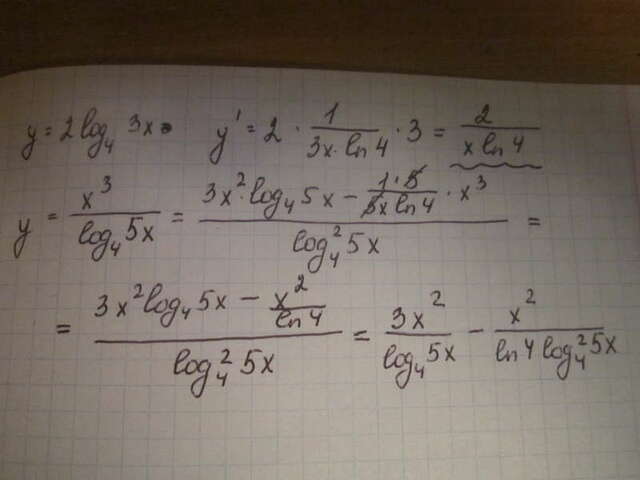 y = 2log₄ 3x y' = 2 · 1/(3x·ln4) · 3 = 2/(x ln 4)
y = x³/(log₄5x) = (3x²·log₄5x − (1·5)/(5x ln4) · x³)/(log₄²5x) =
= (3x²log₄5x − x²/(ln4))/(log₄²5x) = 3x²/(log₄5x) − x²/(ln4 log₄²5x)